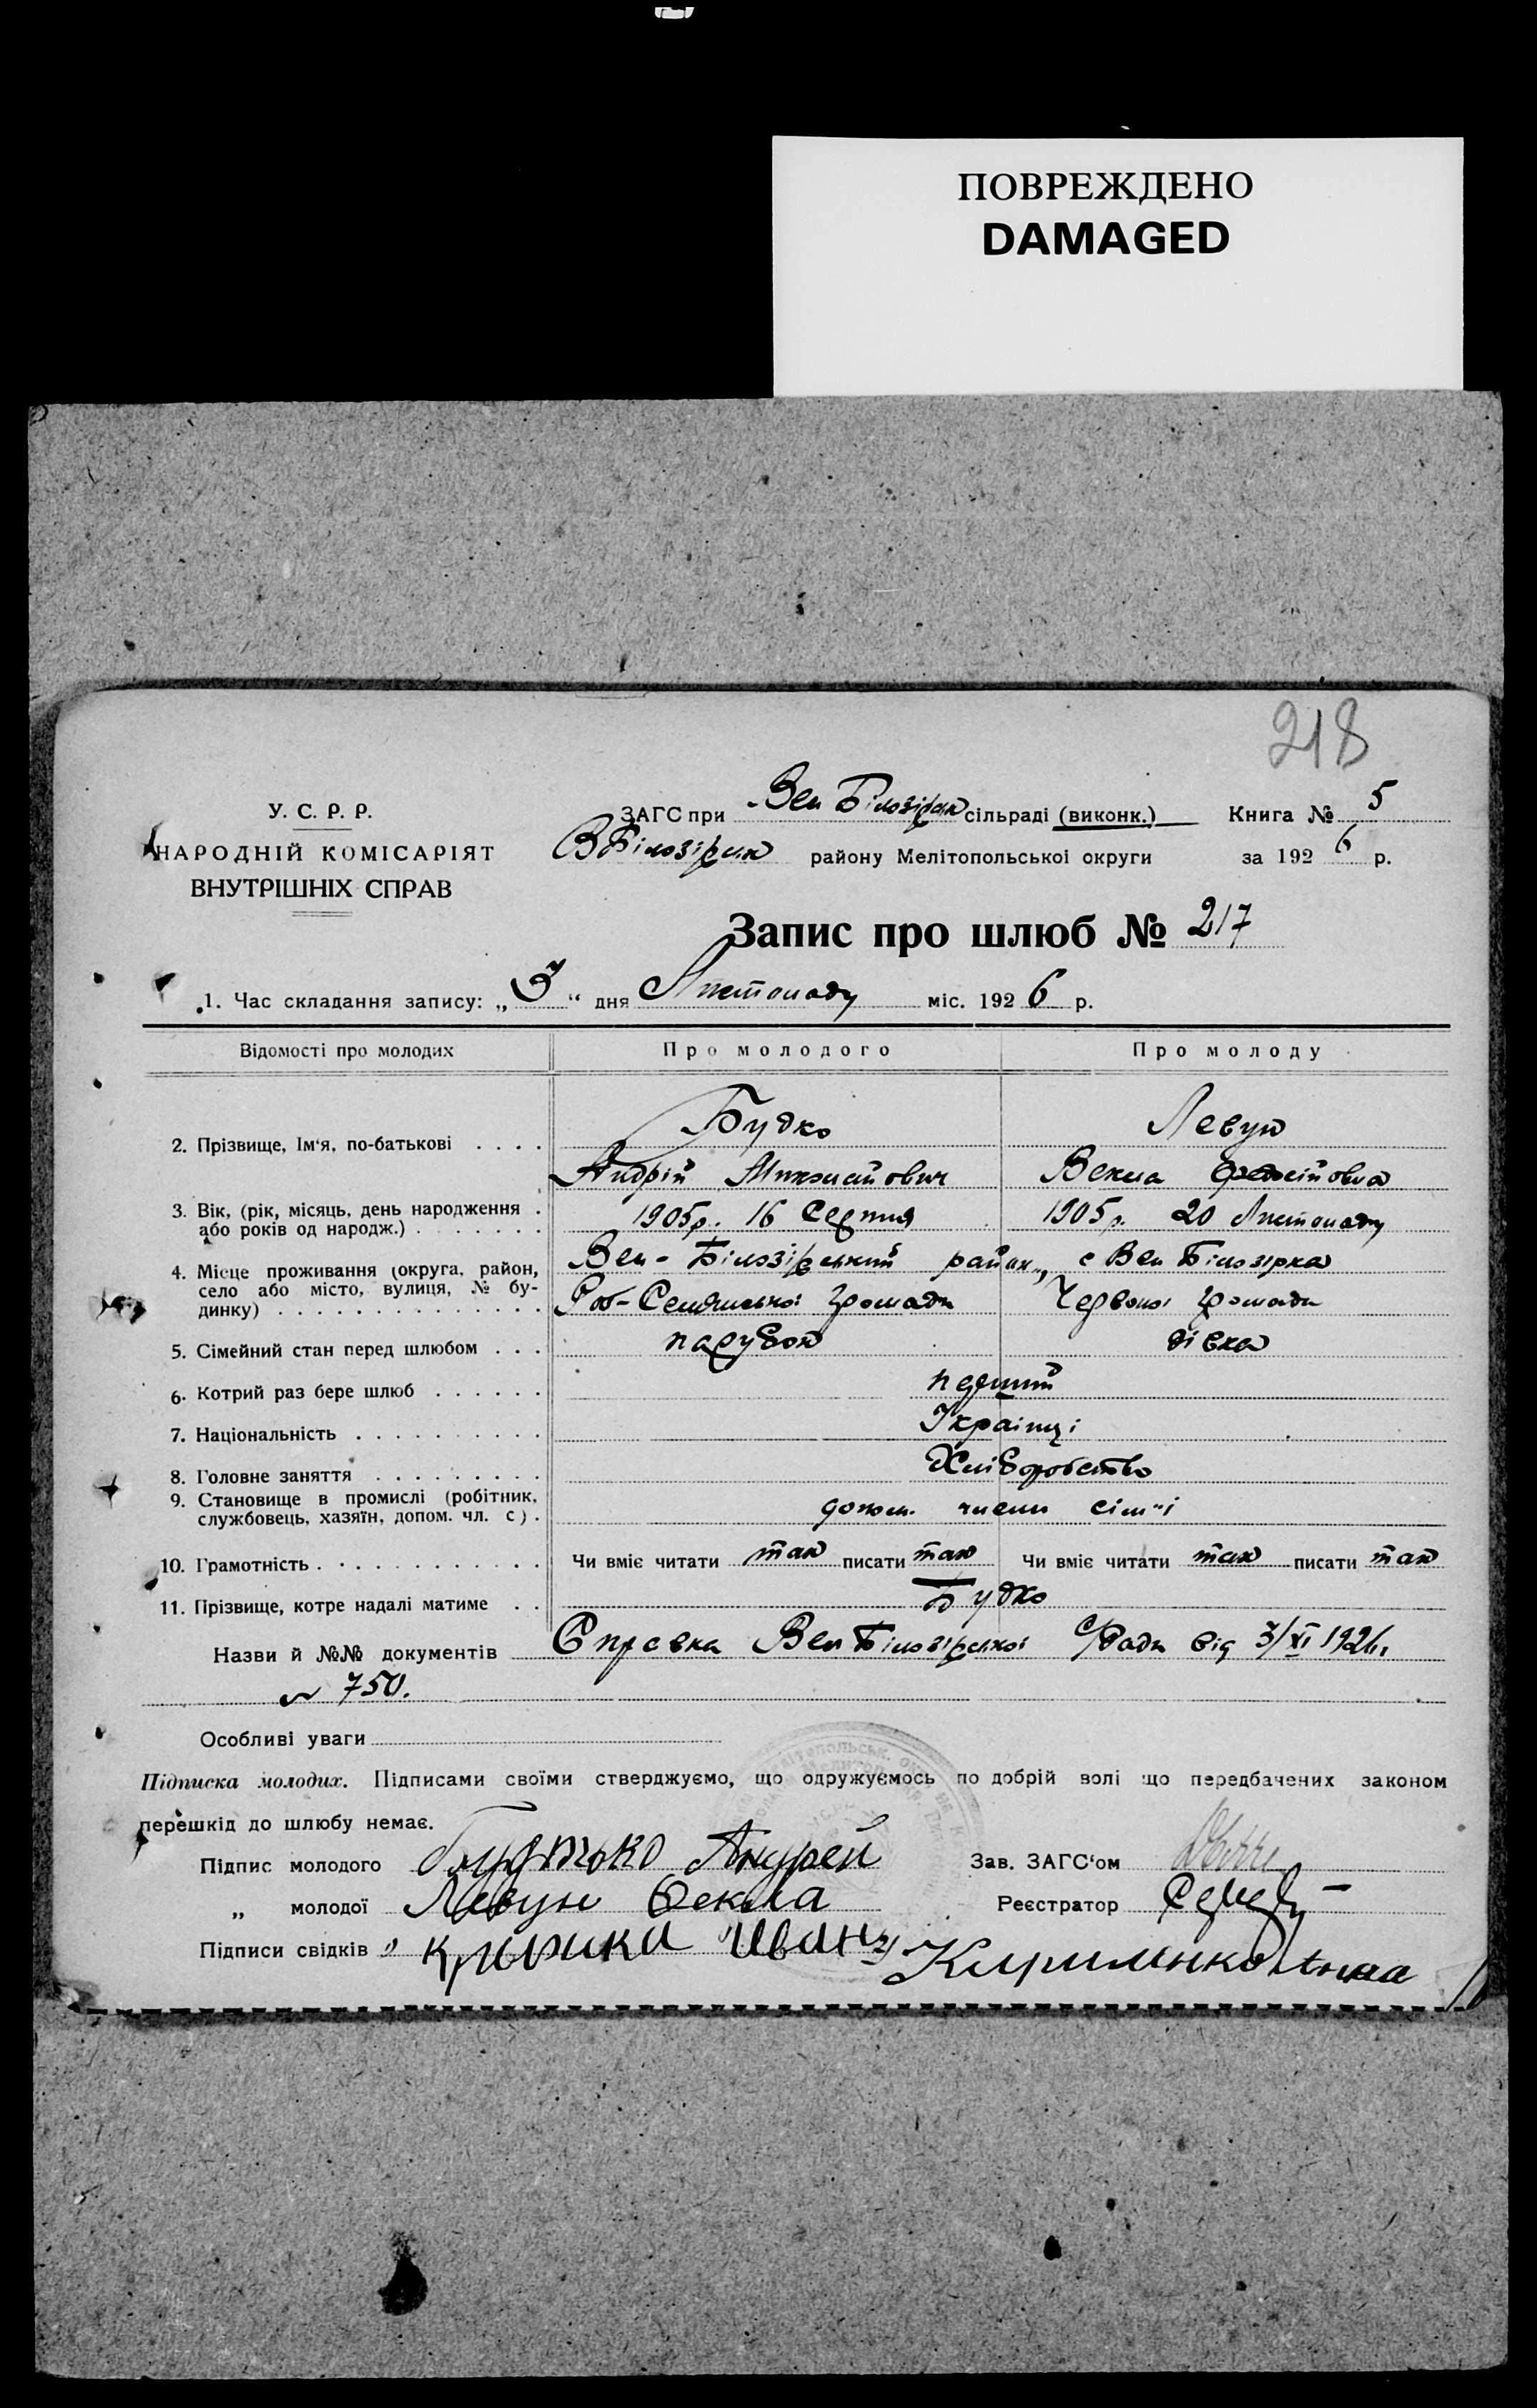 ПОВРЕЖДЕНО
DAMAGED
218
У. С. Р. Р.
НАРОДНІЙ КОМІСАРІЯТ
ВНУТРІШНІХ СПРАВ
ЗАГС при Вел Білозірк сільраді (виконк.) Книга № 5
В Білозірск району Мелітопольської округи за 1926 р.
Запис про шлюб № 217
1. Час складання запису: „3“ дня Листопаду міс. 1926 р.
Відомості про молодих Про молодого Про молоду
2. Прізвище, Ім'я, по-батькові . . . . Будко Левун
Андрій Векла
3. Вік, (рік, місяць, день народження . 1905р. 16 Серпня 1905р. 20 Листопаду
або років од народж.) . . . . . . .
4. Місце проживання (округа, район, Вел-Білозірський район, с Вел Білозірка
село або місто, вулиця, № бу-
динку) . . . . . . . . . . . . . . Громади Червоної Громади
5. Сімейний стан перед шлюбом . . . парубок дівка
6. Котрий раз бере шлюб . . . . . . перший
7. Національність . . . . . . . . . . Українці
8. Головне заняття . . . . . . . . . Хліборобство
9. Становище в промислі (робітник,
службовець, хазяїн, допом. чл. с) . допом. члени сім"ї
10. Грамотність . . . . . . . . . . . . Чи вміє читати так писати так Чи вміє читати так писати так
11. Прізвище, котре надалі матиме . . Будко
Назви й №№ документів Справка Вел Білозірської С/Ради від 3/XI 1926р.
№ 750.
Особливі уваги
Підписка молодих. Підписами своїми стверджуємо, що одружуємось по добрій волі що передбачених законом
перешкід до шлюбу немає.
Підпис молодого Андрей Зав. ЗАГС‘ом
„ молодої Левун Векла Реєстратор
Підписи свідків Иван Кириленко